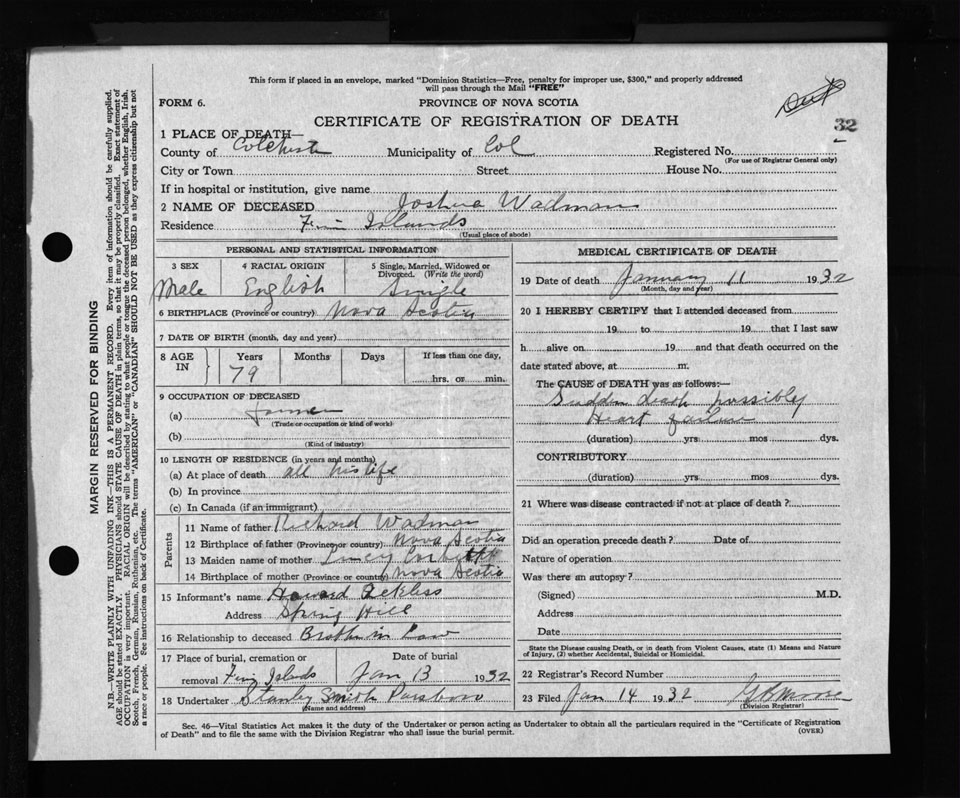 This form if placed in an envelope, marked "Dominion Statistics—Free, penalty for improper use, $300," and properly addressed
will pass through the Mail "FREE"
FORM 6.
PROVINCE OF NOVA SCOTIA
CERTIFICATE OF REGISTRATION OF DEATH
32
1 PLACE OF DEATH—
County of Colchester Municipality of Col Registered No.
(For use of Registrar General only)
City or Town Street House No.
If in hospital or institution, give name
2 NAME OF DECEASED Joshua Wadman
Residence Five Islands
(Usual place of abode)
PERSONAL AND STATISTICAL INFORMATION
3 SEX 4 RACIAL ORIGIN 5 Single, Married, Widowed or
Divorced. (Write the word)
Male English Single
6 BIRTHPLACE (Province or country) Nova Scotia
7 DATE OF BIRTH (month, day and year)
8 AGE IN Years Months Days If less than one day,
79 hrs. or min.
9 OCCUPATION OF DECEASED
(a) Farmer
(Trade or occupation or kind of work)
(b)
(Kind of industry)
10 LENGTH OF RESIDENCE (in years and months)
(a) At place of death all his life
(b) In province
(c) In Canada (if an immigrant)
Parents
11 Name of father Richard Wadman
12 Birthplace of father (Province or country) Nova Scotia
13 Maiden name of mother Corbett
14 Birthplace of mother (Province or country) Nova Scotia
15 Informant's name Howard
Address Spring Hill
16 Relationship to deceased Brother in Law
17 Place of burial, cremation or Date of burial
removal Five Islands Jan 13 1932
18 Undertaker Stanley Smith Parsboro
(Name and address)
MEDICAL CERTIFICATE OF DEATH
19 Date of death January 11 1932
(Month, day and year)
20 I HEREBY CERTIFY that I attended deceased from
19 to 19 that I last saw
h alive on 19 and that death occurred on the
date stated above, at m.
The CAUSE of DEATH was as follows:—
Sudden death possibly
Heart failure
(duration) yrs mos dys.
CONTRIBUTORY
(duration) yrs mos dys.
21 Where was disease contracted if not at place of death?
Did an operation precede death? Date of
Nature of operation
Was there an autopsy?
(Signed) M.D.
Address
Date
State the Disease causing Death, or in death from Violent Causes, state (1) Means and Nature
of Injury, (2) whether Accidental, Suicidal or Homicidal.
22 Registrar's Record Number
23 Filed Jan 14 1932
(Division Registrar)
Sec. 46—Vital Statistics Act makes it the duty of the Undertaker or person acting as Undertaker to obtain all the particulars required in the "Certificate of Registration
of Death" and to file the same with the Division Registrar who shall issue the burial permit.
(OVER)
MARGIN RESERVED FOR BINDING
N.B.—WRITE PLAINLY WITH UNFADING INK—THIS IS A PERMANENT RECORD. Every item of information should be carefully supplied.
AGE should be stated EXACTLY. PHYSICIANS should STATE CAUSE OF DEATH in plain terms, so that it may be properly classified. Exact statement of
OCCUPATION is very important. RACIAL ORIGIN will be described by stating to what people or tongue the deceased person belonged, whether English, Irish,
Scotch, French, German, Russian, Ruthenian, etc. The terms "AMERICAN" or "CANADIAN" SHOULD NOT BE USED as they express citizenship but not
a race or people. See instructions on back of Certificate.